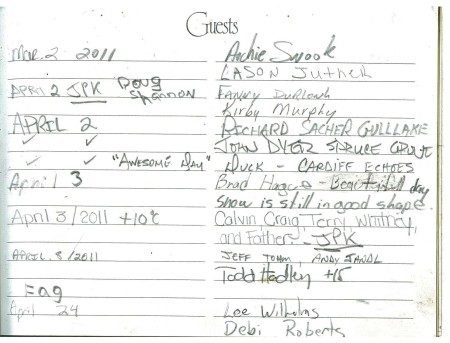 Guests
Mar 2 2011 Archie Snook
JASON
APRIL 2 JPK Doug Shannon FANNY
Kirby Murphy
APRIL 2 RICHARD SACHER GULL LAKE
JOHN DYER SPRUCE GROVE
"AWESOME DAY" - CARDIFF ECHOES
April 3 Brad - Beautifull day
snow is still in good shape.
April 3/2011 +10°C Calvin Craig, Terry Whitney,
and Father JPK
APRIL 8/2011 JEFF ANDY
Todd Hadley +15
April 24 Lee
Debi Roberts